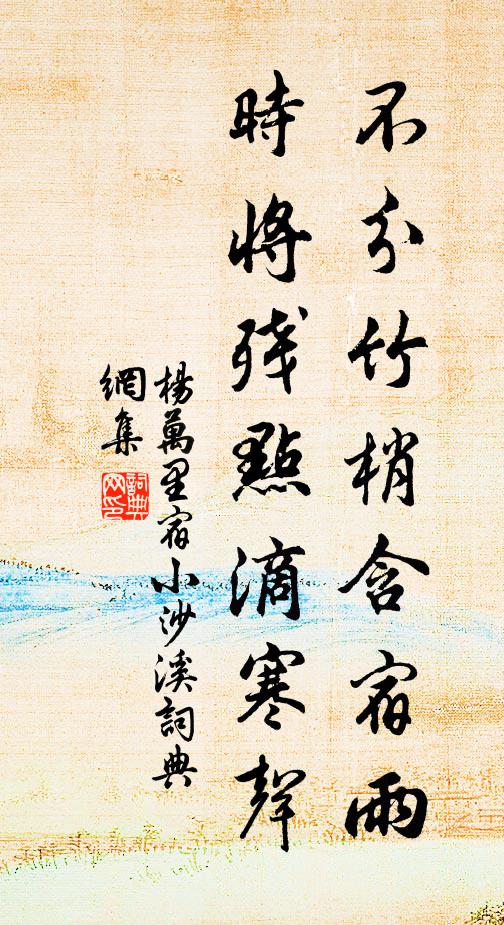 不分竹梢含宿雨
時將殘點滴寒聲
楊萬里宿小沙溪詞典
網集
詞典
网印